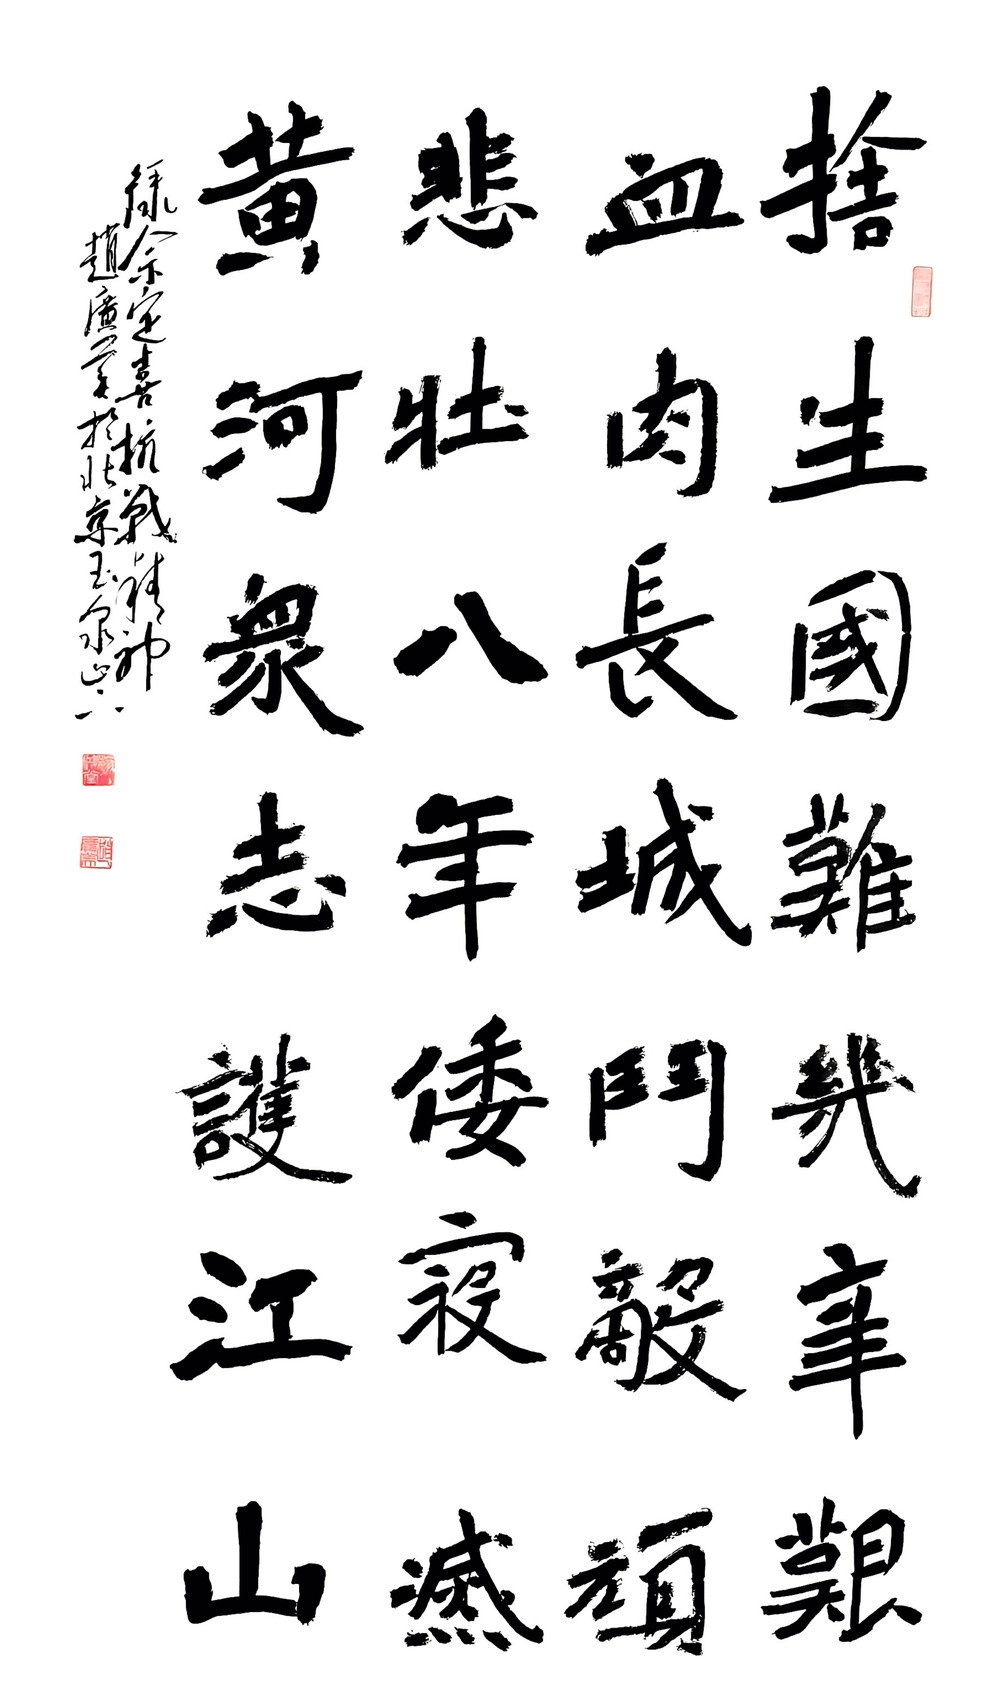 捨生國難幾辛艱
血肉長城鬥敵頑
悲壯八年倭寇滅
黃河眾志護江山
錄余定喜抗戰精神
趙廣於北京玉泉山